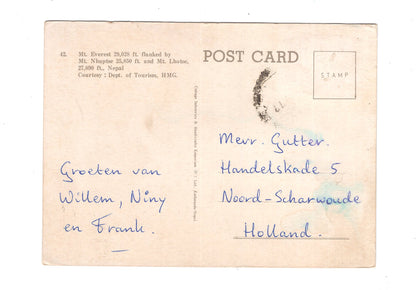 42. Mt. Everest 29,028 ft. flanked by
Mt. Nhuptse 25,850 ft. and Mt. Lhotse,
27,890 ft., Nepal
Courtesy : Dept. of Tourism, HMG.
POST CARD
STAMP
Groeten van
Willem, Niny
en Frank.
Mevr. Gutter.
Handelskade 5
Noord-Scharwoude
Holland.